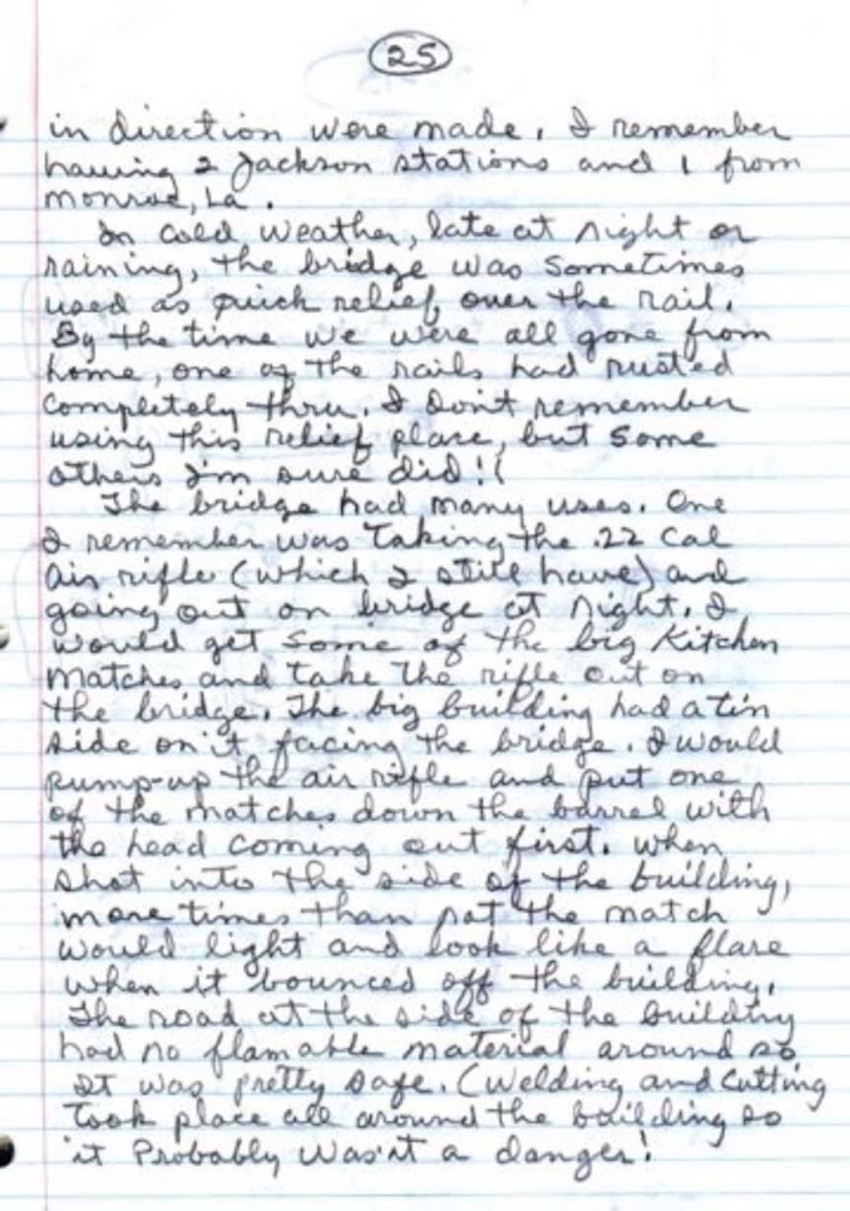 25
in direction were made. I remember
having 2 Jackson stations and 1 from
Monroe, La.
In cold weather, late at night or
raining, the bridge was sometimes
used as quick relief, over the rail.
By the time we were all gone from
home, one of the rails had rusted
completely thru. I don't remember
using this relief place, but some
others I'm sure did!!
The bridge had many uses. One
I remember was taking the .22 cal
air rifle (which I still have) and
going out on bridge at night. I
would get some of the big kitchen
matches and take the rifle out on
the bridge. The big building had a tin
side on it facing the bridge. I would
pump-up the air rifle and put one
of the matches down the barrel with
the head coming out first. When
shot into the side of the building,
more times than not the match
would light and look like a flare
when it bounced off the building.
The road at the side of the building
had no flamable material around so
it was pretty safe. (Welding and cutting
took place all around the building so
it probably was'nt a danger!